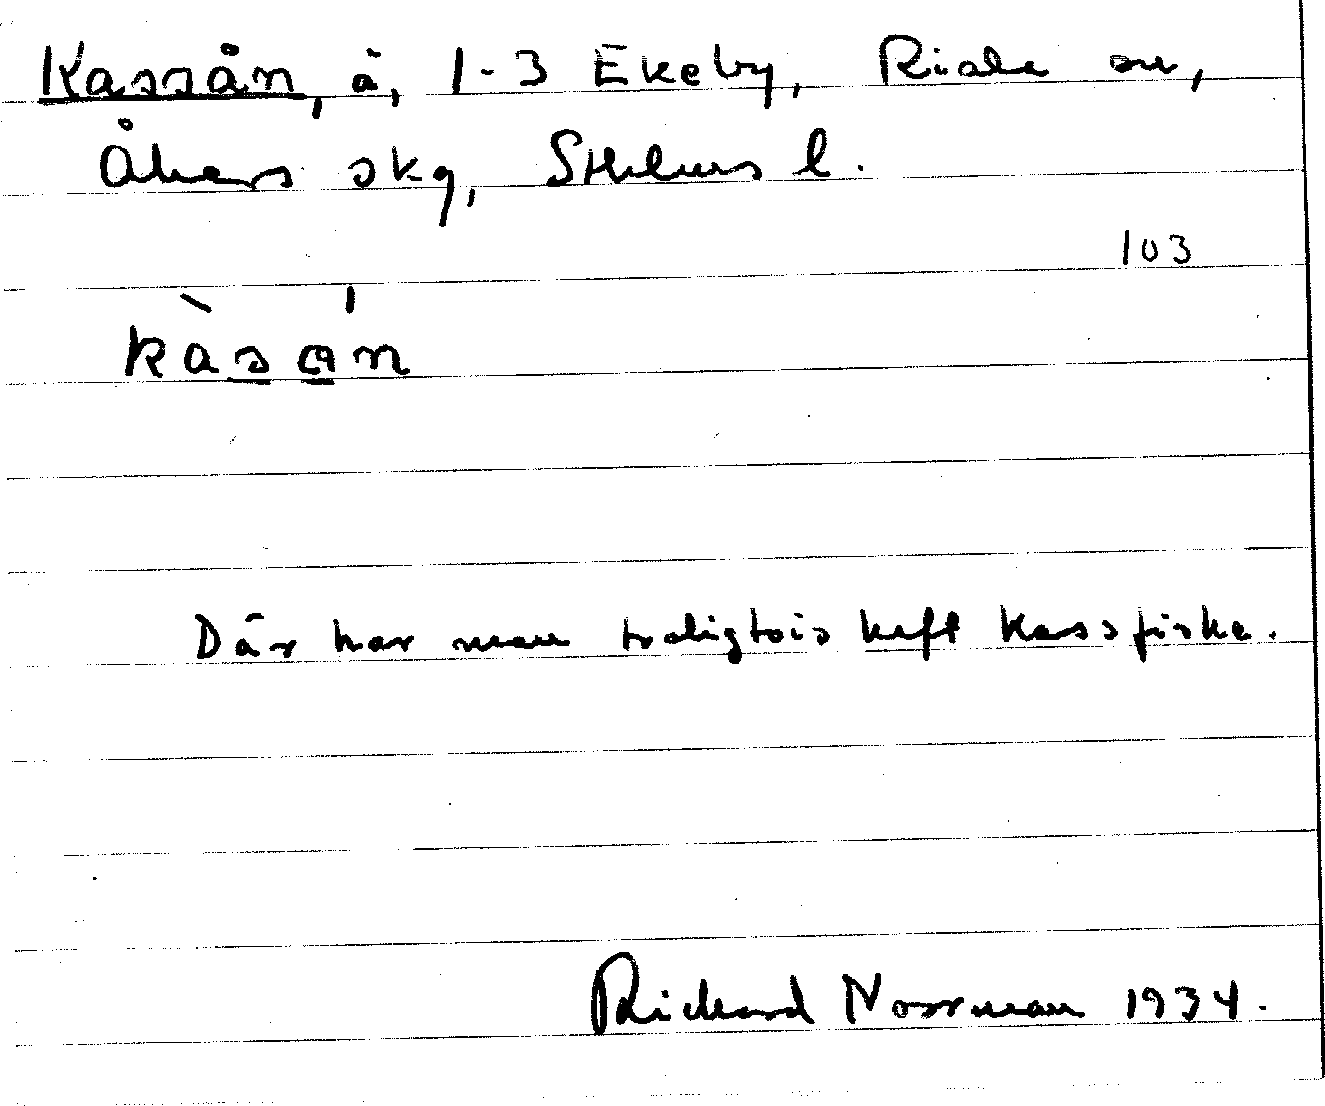 Kassån, å, 1-3 Ekeby, Riala sn,
Åkers skg, Sthlms l.
103
kàsán
Där har man troligtvis haft kassfiske.
Rickard Norrman 1934.